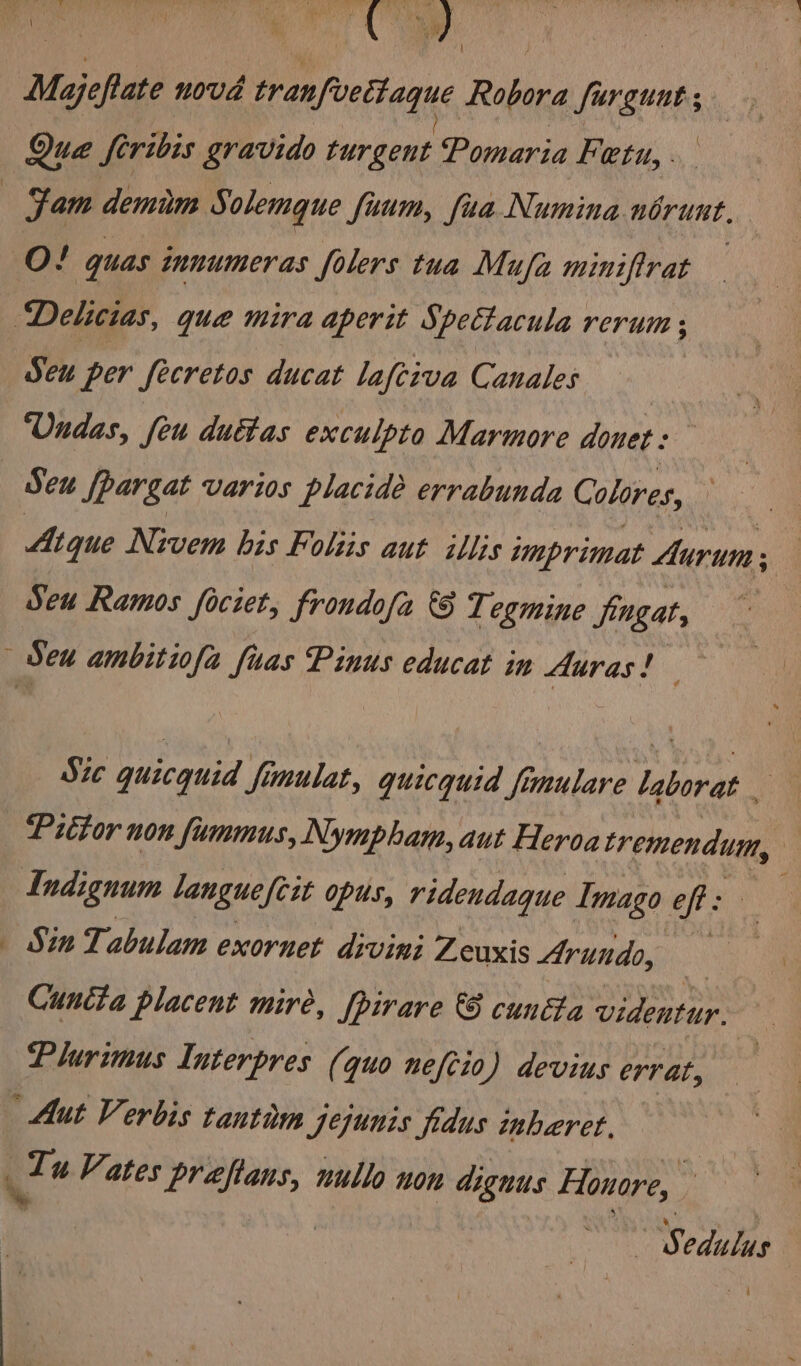 Majeſtate novâ tranſvectaque Robora ſurgunt;
Quæ ſcribis gravido turgent Pomaria Fœtu,
Jam demùm Solemque ſuum, ſua Numina nôrunt.
O! quas innumeras ſolers tua Muſa miniſtrat
Delicias, quæ mira aperit Spectacula rerum;
Seu per ſecretos ducat laſciva Canales
Undas, ſeu ductas exculpto Marmore donet:
Seu ſpargat varios placidè errabunda Colores,
Atque Nivem his Foliis aut illis imprimat Aurum;
Seu Ramos ſociet, frondoſa & Tegmine fingat,
Seu ambitioſa ſuas Pinus educat in Auras!
Sic quicquid ſimulat, quicquid ſimulare laborat
Pictor non ſummus, Nympham, aut Heroa tremendum,
Indignum langueſcit opus, ridendaque Imago eſt:
Sin Tabulam exornet divini Zeuxis Arundo,
Cuncta placent mirè, ſpirare & cuncta videntur.
Plurimus Interpres (quo neſcio) devius errat,
Aut Verbis tantùm jejunis fidus inhæret.
Tu Vates præſtans, nullo non dignus Honore,
Sedulus